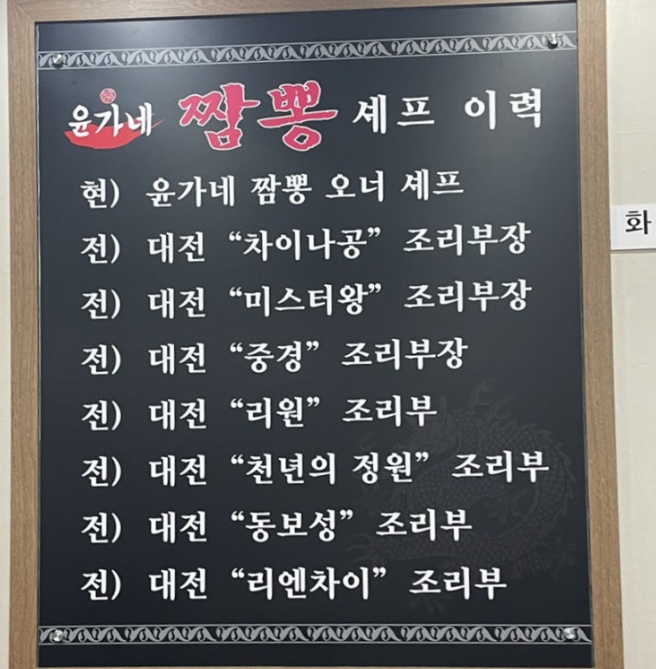 윤가네 짬뽕 셰프 이력
현) 윤가네 짬뽕 오너 셰프
전) 대전 “차이나공” 조리부장
전) 대전 “미스터왕” 조리부장
전) 대전 “중경” 조리부장
전) 대전 “리원” 조리부
전) 대전 “천년의 정원” 조리부
전) 대전 “동보성” 조리부
전) 대전 “리엔차이” 조리부
화